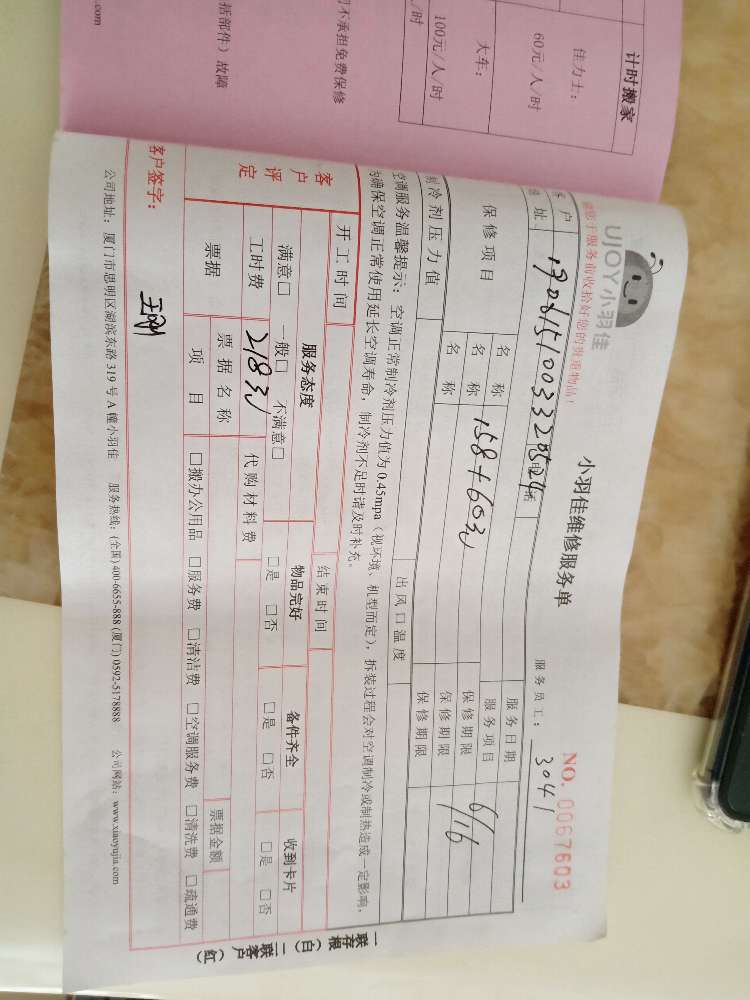 计时搬家
佳力士：
60元/人/时
大车：
100元/人/时
/时
不承担免费保修
括部件）故障
.com
UJOY小羽佳
请您于服务前收拾好您的贵重物品！
小羽佳维修服务单
NO. 0067603
服务员工： 3041
客户
地址
1906151003320524
电话
服务日期
保修项目
名称
服务项目
6/16
名称
158+60元
保修期限
名称
保修期限
保修期限
制冷剂压力值
出风口温度
空调服务温馨提示：空调正常制冷剂压力值为0.45mpa（视环境、机型而定），拆装过程会对空调制冷或制热造成一定影响，
为确保空调正常使用延长空调寿命，制冷剂不足时请及时补充。
开工时间
结束时间
客户评定
服务态度
物品完好
备件齐全
收到卡片
满意□ 一般□ 不满意□
□是 □否
□是 □否
□是 □否
工时费
218元
代购材料费
票据
票据名称
票据金额
项目
□搬办公用品 □服务费 □清洁费 □空调服务费 □清洗费 □疏通费
客户签字：
公司地址：厦门市思明区湖滨东路319号A幢小羽佳 服务热线：(全国) 400-6655-888 (厦门) 0592-5178888 公司网站：www.xiaoyujia.com
一联存根（白）二联客户（红）